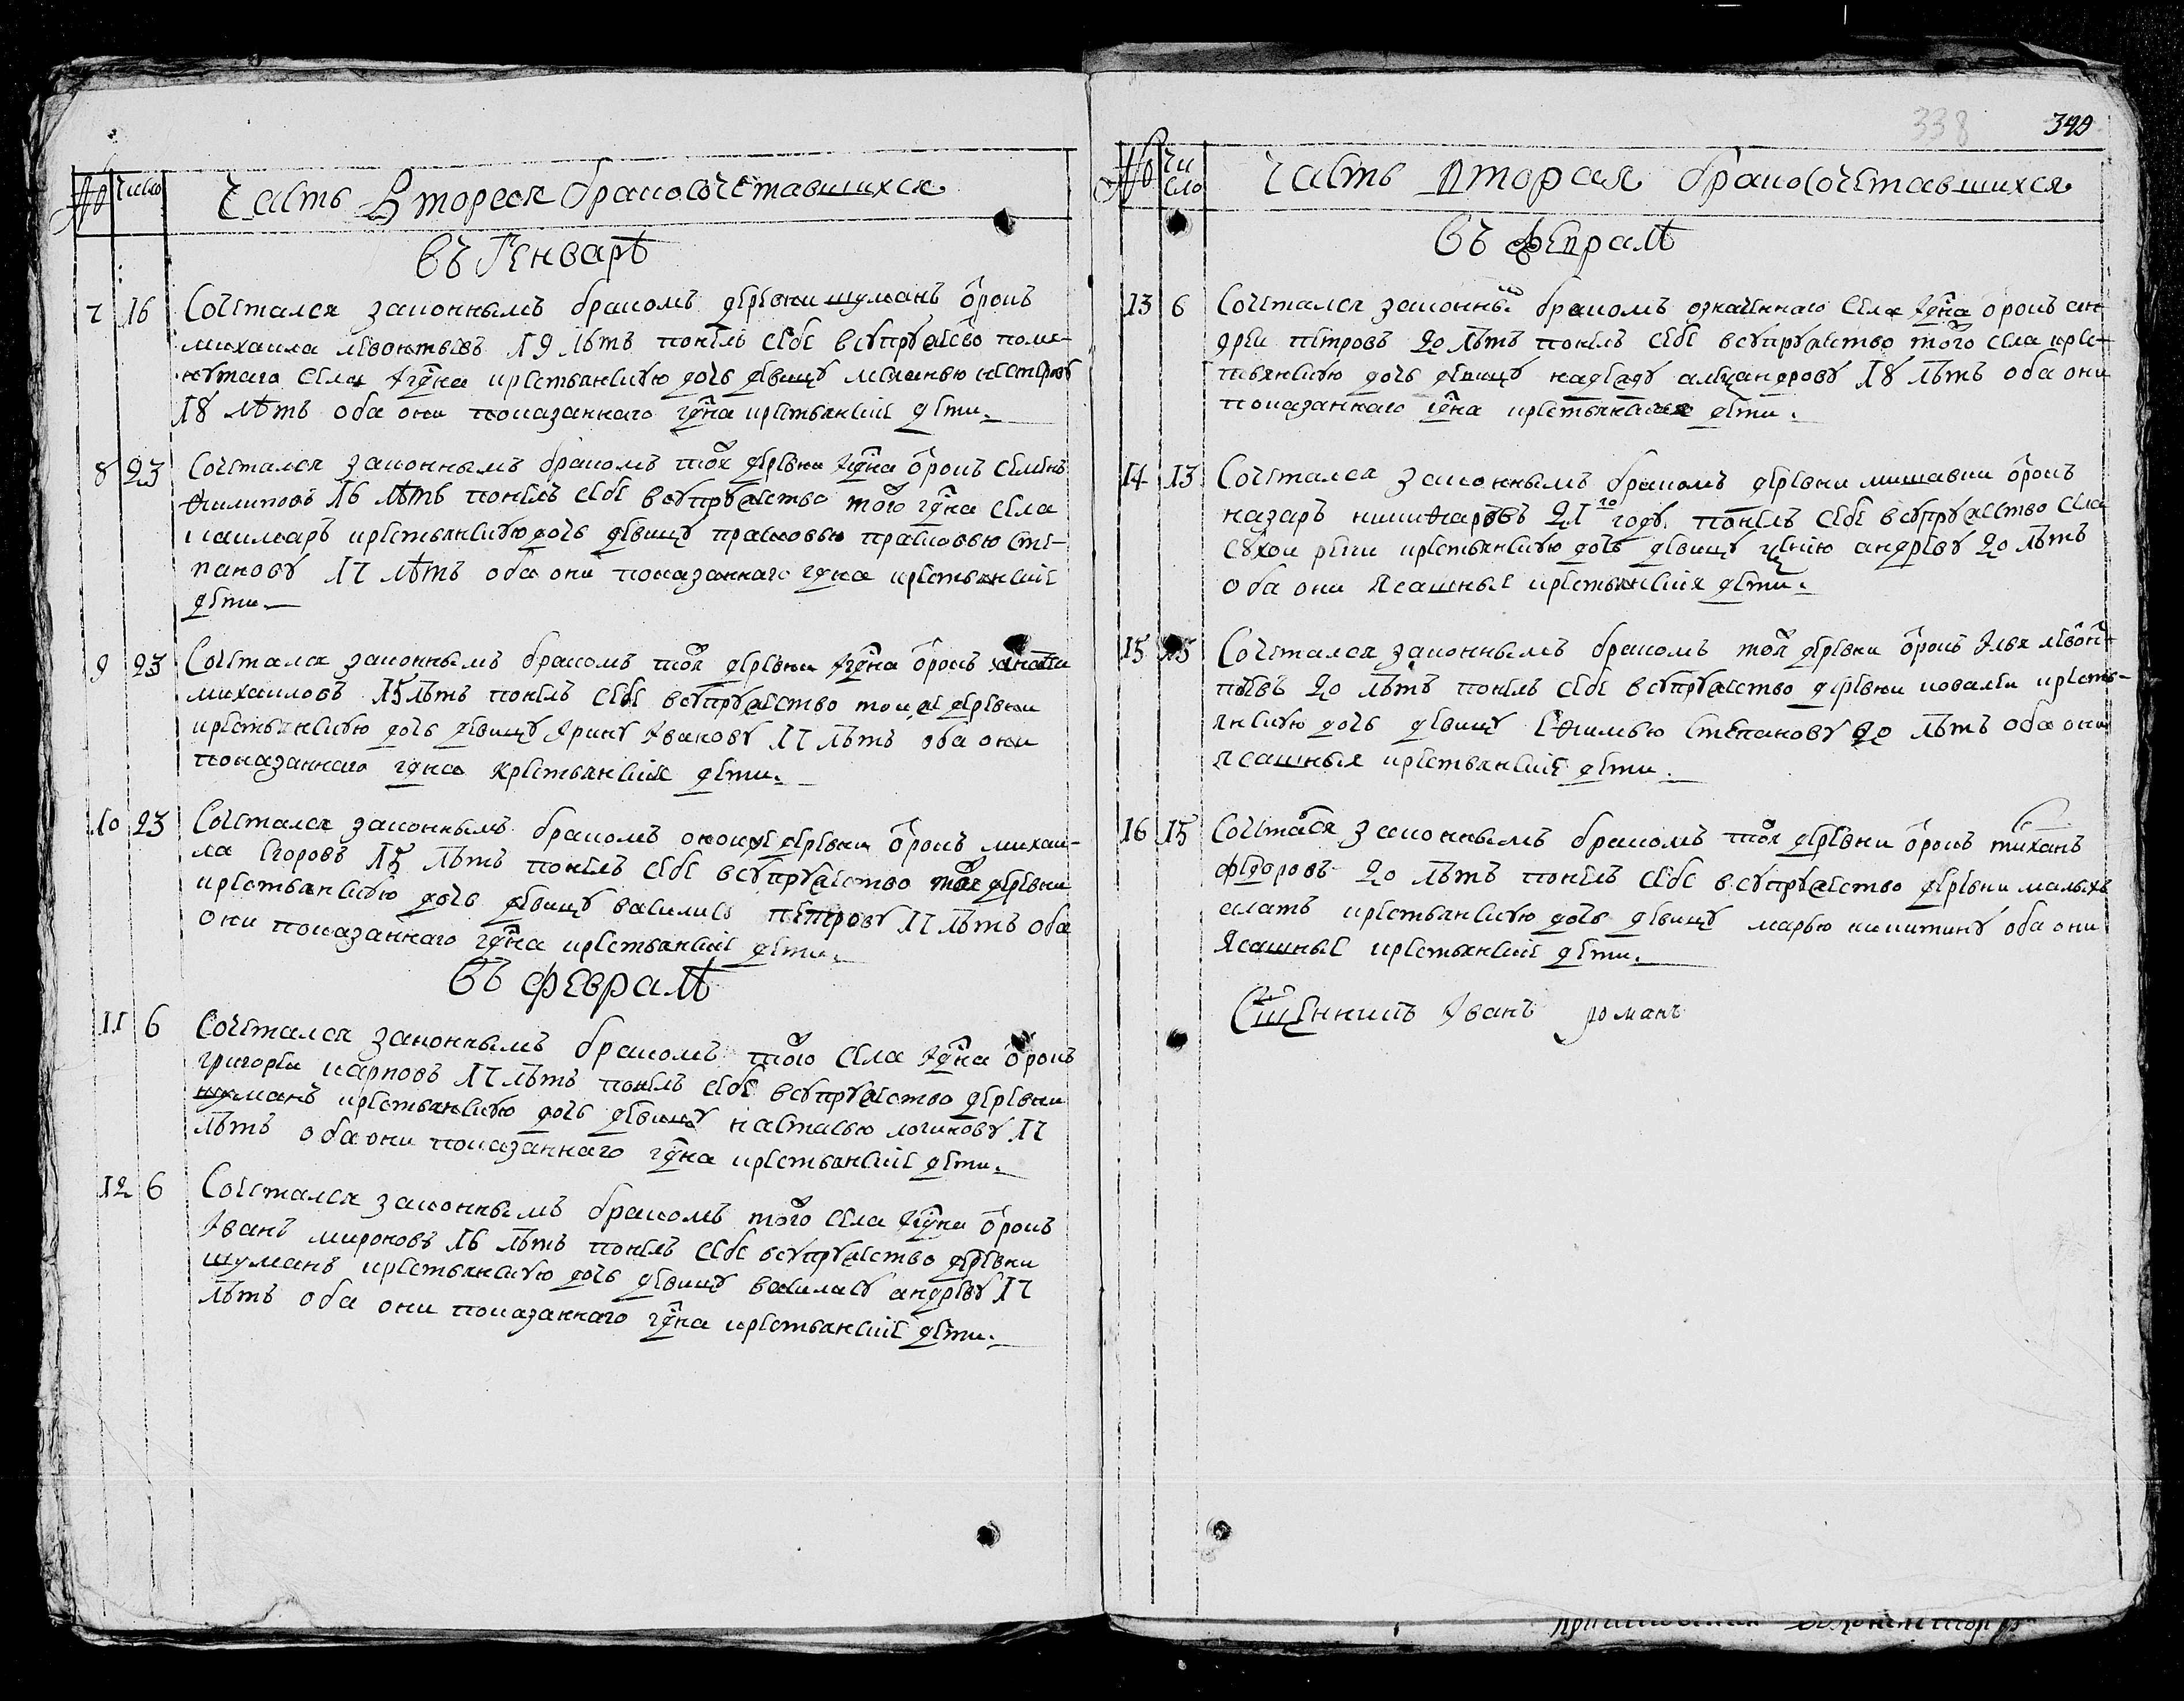 № число Часть Вторая бракосочетавшихся
въ Генварѣ
7 16 Сочетался законнымъ бракомъ деревни шуманъ отрокъ
михаила левонтьевъ 19 лѣтъ понелъ себе всупружество помя-
нутаго села Ігдна крестьянскую дочь девицу меланью нестерову
18 лѣтъ оба они показаннаго гдна крестьянские дети
8 23 Сочетался законнымъ бракомъ тои деревни Ігдна отрокъ семенъ
ѳилиповъ 16 лѣтъ понелъ себе всупружество того гдна села
крестьянскую дочь девицу прасковью прасковью сте-
панову 17 лѣтъ оба они показаннаго гдна крестьянские
дети
9 23 Сочетался законнымъ бракомъ тои деревни Ігдна отрокъ
михаиловъ 15 лѣтъ понелъ себе всупружество тои же деревни
крестьянскую дочь девицу Ірину Іванову 17 лѣтъ оба они
показаннаго гдна крестьянские дети
10 23 Сочетался законнымъ бракомъ оной же деревни отрокъ михаи-
ла Егоровъ 15 лѣтъ понелъ себе всупружество тои деревни
крестьянскую дочь девицу василису петрову 17 лѣтъ оба
они показаннаго гдна крестьянские дети
въ февралѣ
11 6 Сочетался законнымъ бракомъ того села Ігдна отрокъ
григореи карповъ 17 лѣтъ понелъ себе всупружество деревни
шуманъ крестьянскую дочь девицу настасью логинову 17
лѣтъ оба они показаннаго гдна крестьянские дети
12 6 Сочетался законнымъ бракомъ того села Ігдна отрокъ
Іванъ мироновъ 16 лѣтъ понелъ себе всупружество деревни
шуманъ крестьянскую дочь девицу василису андреву 17
лѣтъ оба они показаннаго гдна крестьянские дети
338 340
№ Чи
сло Часть Вторая бракосочетавшихся
въ февралѣ
13 6 Сочетался законны бракомъ означеннаго села Ігдна отрокъ ан
дреи петровъ 20 лѣтъ понелъ себе всупружество того села крес-
тьянскую дочь девицу надежду алеѯандрову 18 лѣтъ оба они
показаннаго гдна крестьянские дети
14 13 Сочетался законнымъ бракомъ деревни мишавки отрокъ
назаръ никиѳаровъ 21 го году понелъ себе всупружество села
сухои реки крестьянскую дочь девицу андреву 20 лѣтъ
оба они Ясашные крестьянския дети
15 15 Сочетался законнымъ бракомъ тои деревни отрокъ Илья левон-
тьевъ 20 лѣтъ понелъ себе всупружество деревни ковалеи кресть-
янскую дочь девицу Еѳимью степанову 20 лѣтъ оба они
ясашныя крестьянские дети
16 15 Сочетася законнымъ бракомъ тои деревни отрокъ тиханъ
федоровъ 20 лѣтъ понелъ себе всупружество деревни малыхъ
алатъ крестьянскую дочь девицу марью никитину оба они
Ясашные крестьянские дети
Сщенникъ Іванъ романъ